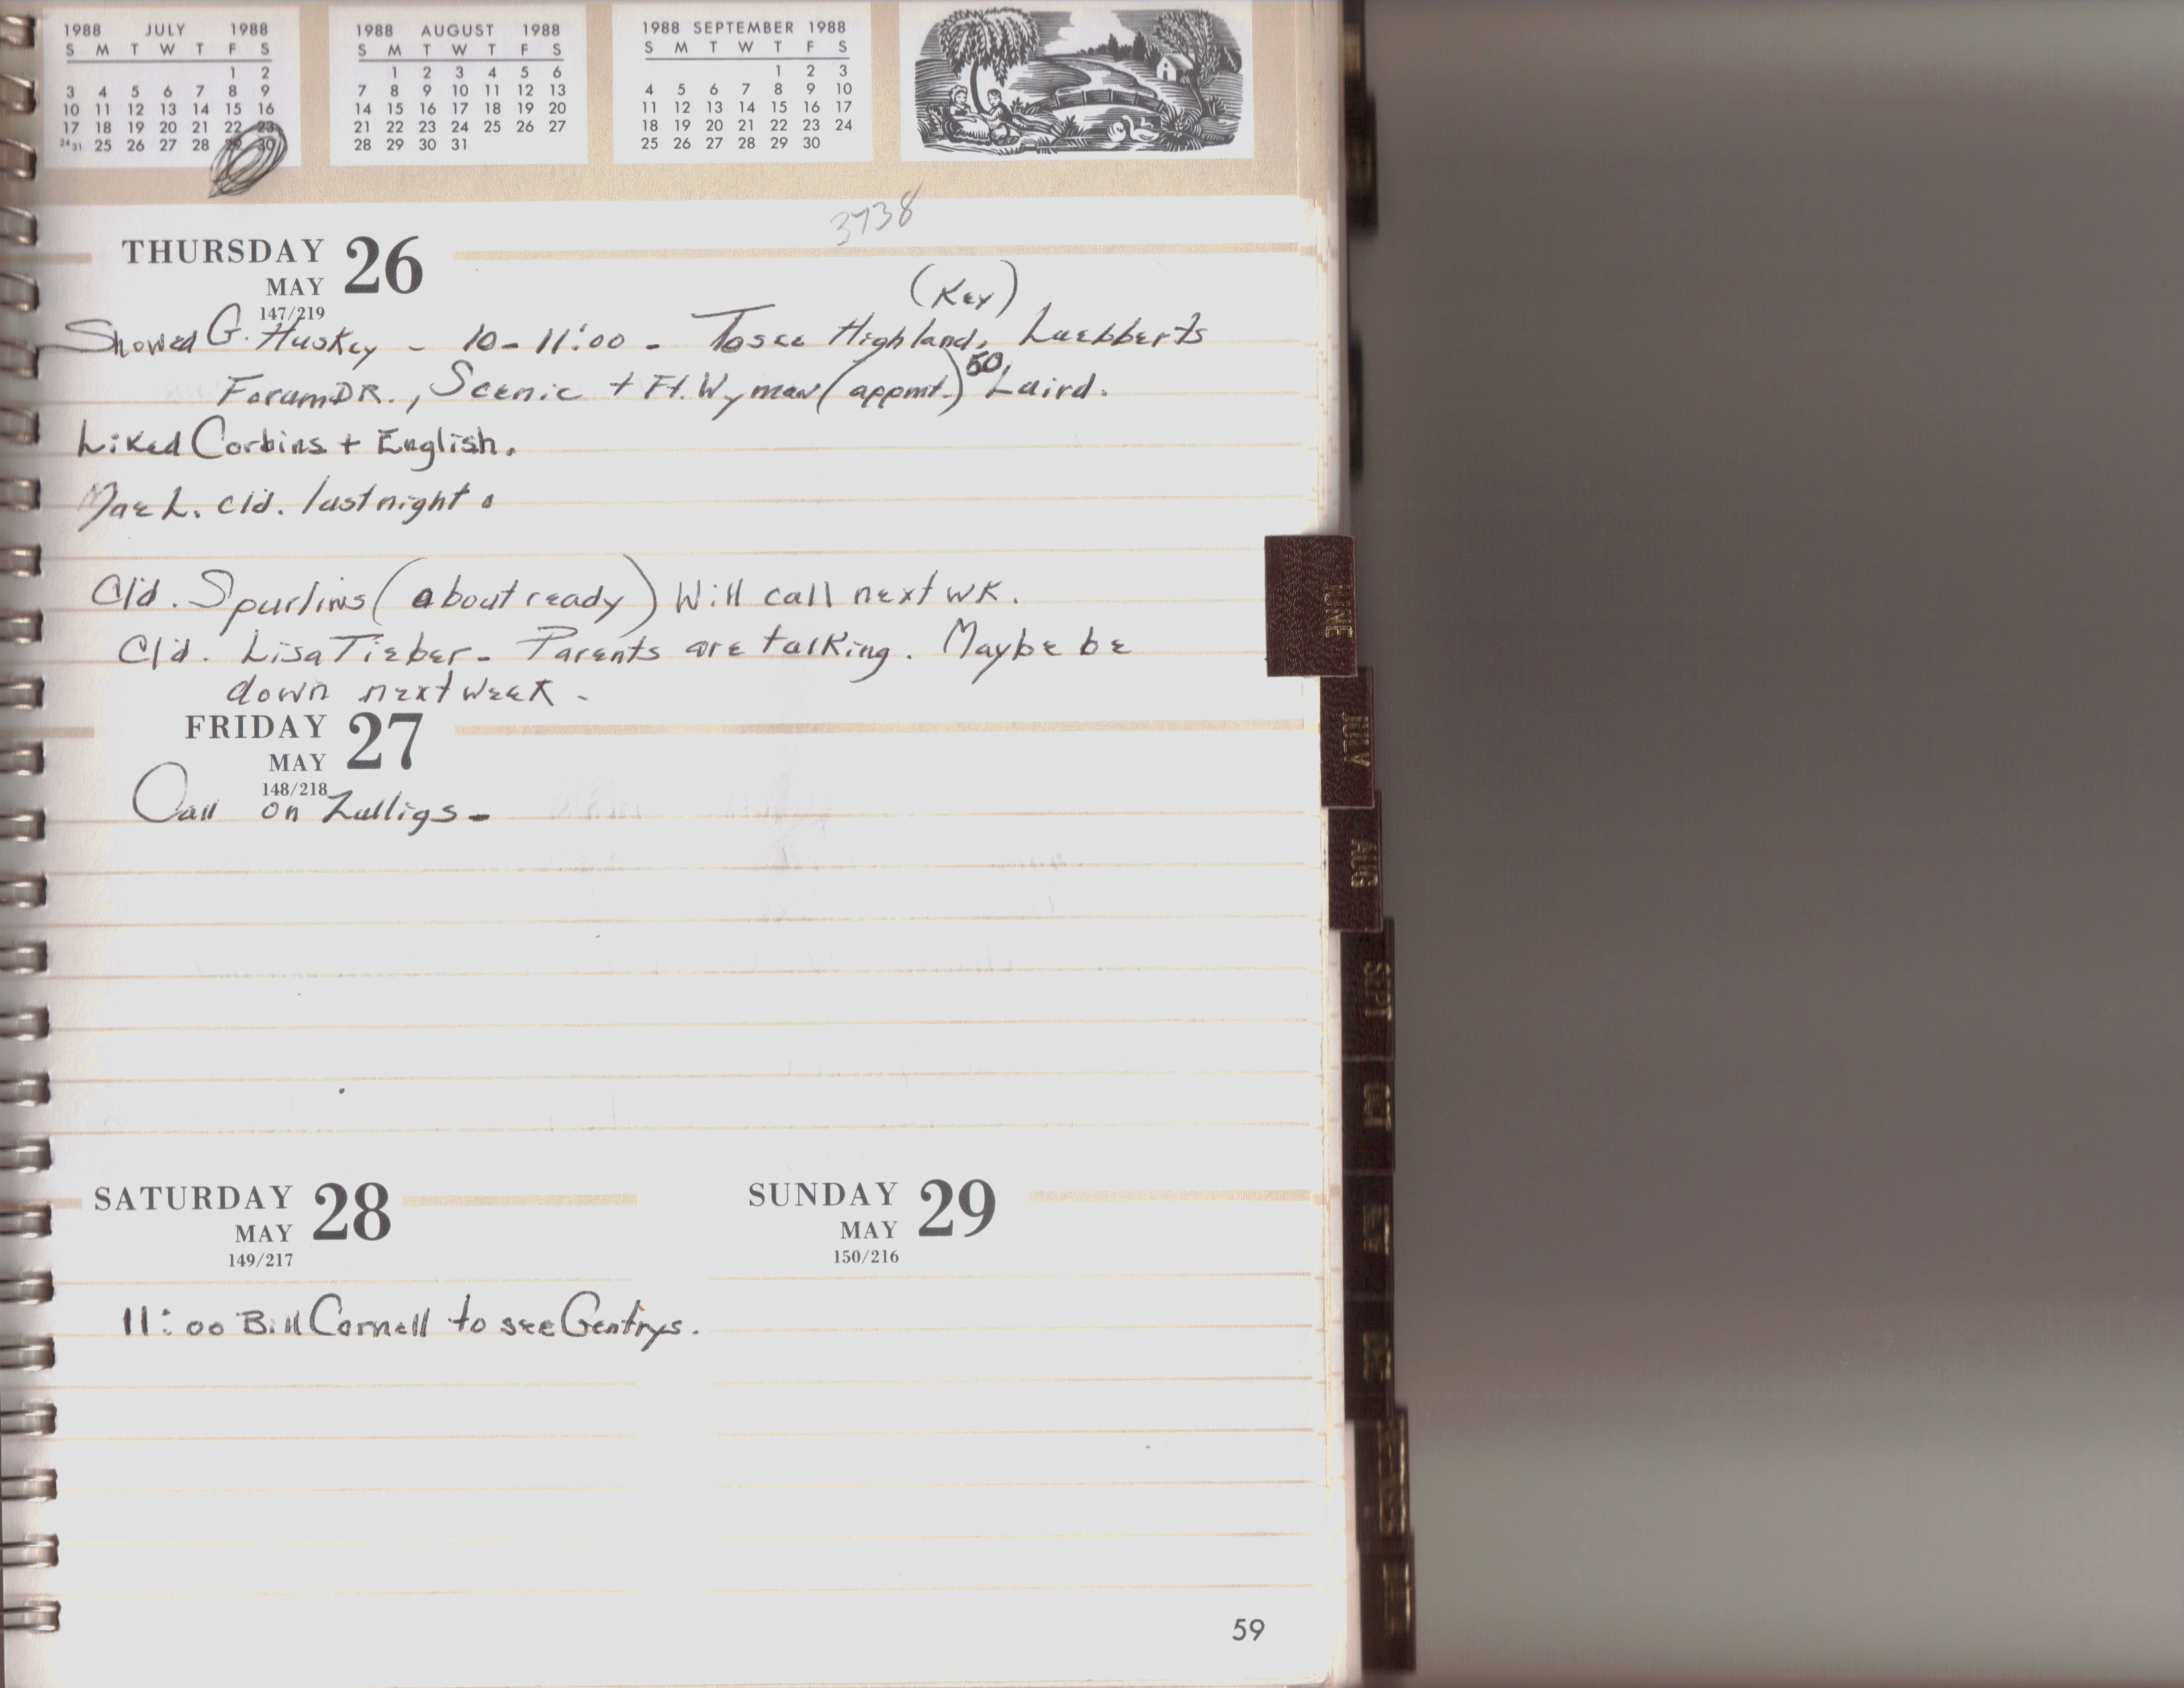 1988 JULY 1988
S M T W T F S
1 2
3 4 5 6 7 8 9
10 11 12 13 14 15 16
17 18 19 20 21 22 23
24 31 25 26 27 28 29 30
1988 AUGUST 1988
S M T W T F S
1 2 3 4 5 6
7 8 9 10 11 12 13
14 15 16 17 18 19 20
21 22 23 24 25 26 27
28 29 30 31
1988 SEPTEMBER 1988
S M T W T F S
1 2 3
4 5 6 7 8 9 10
11 12 13 14 15 16 17
18 19 20 21 22 23 24
25 26 27 28 29 30
3738
THURSDAY 26
MAY
147/219
(Key)
Showed G. Huskey - 10-11:00 - To see Highland, Luebberts
Forum DR., Scenic + Ft. Wyman (appmt.) 50 Laird.
Liked Corbins + English.
Mae L. cld. last night.
Cld. Spurlins (about ready) Will call next wk.
Cld. Lisa Tieber - Parents are talking. Maybe be
down next week -
FRIDAY 27
MAY
148/218
Call on Zulligs -
SATURDAY 28
MAY
149/217
11:00 Bill Cornell to see Gentrys.
SUNDAY 29
MAY
150/216
59
JUNE
JULY
AUG
SEPT
OCT